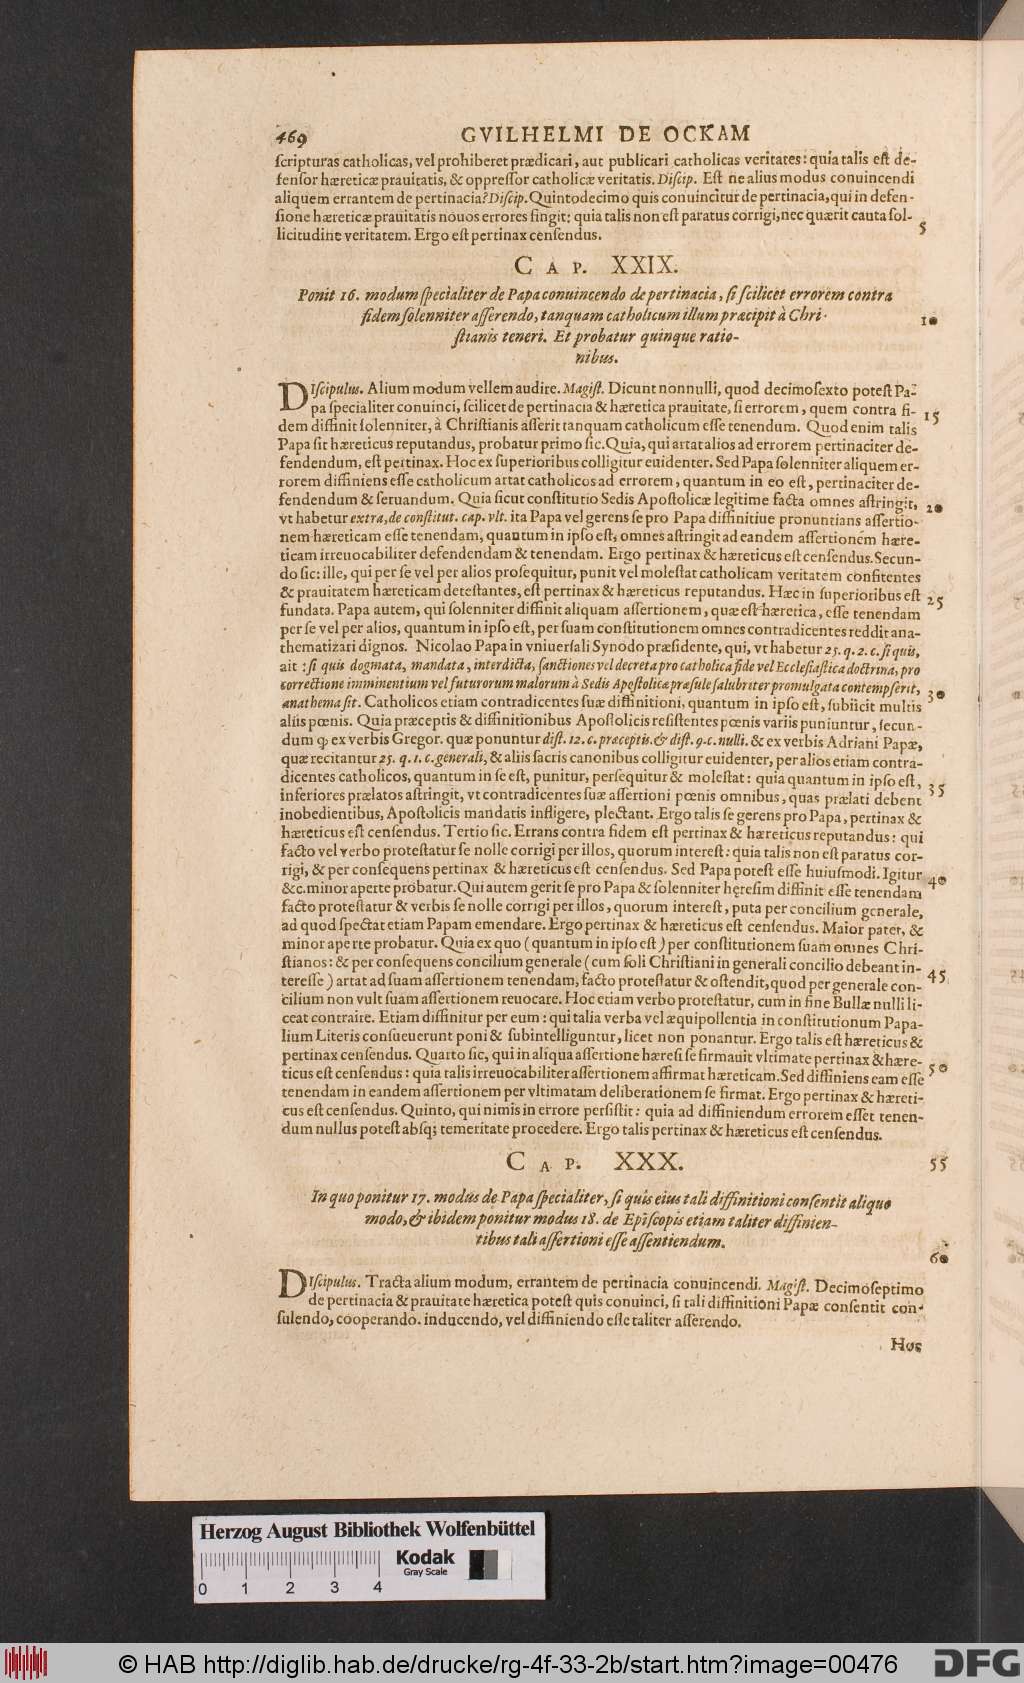 469 GVILHELMI DE OCKAM
scripturas catholicas, vel prohiberet prædicari, aut publicari catholicas veritates: quia talis est de-
fensor hæreticæ prauitatis, & oppressor catholicæ veritatis. Discip. Est ne alius modus conuincendi
aliquem errantem de pertinacia? Discip. Quintodecimo quis conuincitur de pertinacia, qui in defen-
sione hæreticæ prauitatis nouos errores fingit: quia talis non est paratus corrigi, nec quærit cauta sol-
licitudine veritatem. Ergo est pertinax censendus.
5
CAP. XXIX.
Ponit 16. modum specialiter de Papa conuincendo de pertinacia, si scilicet errorem contra
fidem solenniter asserendo, tanquam catholicum illum præcipit à Chri-
10
stianis teneri. Et probatur quinque ratio-
nibus.
DIscipulus. Alium modum vellem audire. Magist. Dicunt nonnulli, quod decimosexto potest Pa-
pa specialiter conuinci, scilicet de pertinacia & hæretica prauitate, si errorem, quem contra fi-
15
dem diffinit solenniter, à Christianis asserit tanquam catholicum esse tenendum. Quod enim talis
Papa sit hæreticus reputandus, probatur primo sic. Quia, qui artat alios ad errorem pertinaciter de-
fendendum, est pertinax. Hoc ex superioribus colligitur euidenter. Sed Papa solenniter aliquem er-
rorem diffiniens esse catholicum artat catholicos ad errorem, quantum in eo est, pertinaciter de-
fendendum & seruandum. Quia sicut constitutio Sedis Apostolicæ legitime facta omnes astringit,
20
vt habetur extra, de constitut. cap. vlt. ita Papa vel gerens se pro Papa diffinitiue pronuntians assertio-
nem hæreticam esse tenendam, quantum in ipso est, omnes astringit ad eandem assertionem hære-
ticam irreuocabiliter defendendam & tenendam. Ergo pertinax & hæreticus est censendus. Secun-
do sic: ille, qui per se vel per alios prosequitur, punit vel molestat catholicam veritatem confitentes
& prauitatem hæreticam detestantes, est pertinax & hæreticus reputandus. Hæc in superioribus est
25
fundata. Papa autem, qui solenniter diffinit aliquam assertionem, quæ est hæretica, esse tenendam
per se vel per alios, quantum in ipso est, per suam constitutionem omnes contradicentes reddit ana-
thematizari dignos. Nicolao Papa in vniuersali Synodo præsidente, qui, vt habetur 25. q. 2. c. si quis,
ait: si quis dogmata, mandata, interdicta, sanctiones vel decreta pro catholica fide vel Ecclesiastica doctrina, pro
correctione imminentium vel futurorum malorum à Sedis Apostolicæ præsule salubriter promulgata contempserit,
30
anathema sit. Catholicos etiam contradicentes suæ diffinitioni, quantum in ipso est, subiicit multis
aliis pœnis. Quia præceptis & diffinitionibus Apostolicis resistentes pœnis variis puniuntur, secun-
dum ꝙ ex verbis Gregor. quæ ponuntur dist. 12. c. præceptis. & dist. 9. c. nulli. & ex verbis Adriani Papæ,
quæ recitantur 25. q. 1. c. generali, & aliis sacris canonibus colligitur euidenter, per alios etiam contra-
dicentes catholicos, quantum in se est, punitur, persequitur & molestat: quia quantum in ipso est,
35
inferiores prælatos astringit, vt contradicentes suæ assertioni pœnis omnibus, quas prælati debent
inobedientibus, Apostolicis mandatis infligere, plectant. Ergo talis se gerens pro Papa, pertinax &
hæreticus est censendus. Tertio sic. Errans contra fidem est pertinax & hæreticus reputandus: qui
facto vel verbo protestatur se nolle corrigi per illos, quorum interest: quia talis non est paratus cor-
rigi, & per consequens pertinax & hæreticus est censendus. Sed Papa potest esse huiusmodi. Igitur
40
&c. minor aperte probatur. Qui autem gerit se pro Papa & solenniter hęresim diffinit esse tenendam
facto protestatur & verbis se nolle corrigi per illos, quorum interest, puta per concilium generale,
ad quod spectat etiam Papam emendare. Ergo pertinax & hæreticus est censendus. Maior patet, &
minor aperte probatur. Quia ex quo (quantum in ipso est) per constitutionem suam omnes Chri-
stianos: & per consequens concilium generale (cum soli Christiani in generali concilio debeant in-
45
teresse) artat ad suam assertionem tenendam, facto protestatur & ostendit, quod per generale con-
cilium non vult suam assertionem reuocare. Hoc etiam verbo protestatur, cum in fine Bullæ nulli li-
ceat contraire. Etiam diffinitur per eum: qui talia verba vel æquipollentia in constitutionum Papa-
lium Literis consueuerunt poni & subintelliguntur, licet non ponantur. Ergo talis est hæreticus &
pertinax censendus. Quarto sic, qui in aliqua assertione hæresi se firmauit vltimate pertinax & hære-
50
ticus est censendus: quia talis irreuocabiliter assertionem affirmat hæreticam. Sed diffiniens eam esse
tenendam in eandem assertionem per vltimatam deliberationem se firmat. Ergo pertinax & hæreti-
cus est censendus. Quinto, qui nimis in errore persistit: quia ad diffiniendum errorem esset tenen-
dum nullus potest absq; temeritate procedere. Ergo talis pertinax & hæreticus est censendus.
CAP. XXX.
55
In quo ponitur 17. modus de Papa specialiter, si quis eius tali diffinitioni consentit aliquo
modo, & ibidem ponitur modus 18. de Episcopis etiam taliter diffinien-
tibus tali assertioni esse assentiendum.
60
DIscipulus. Tracta alium modum, errantem de pertinacia conuincendi. Magist. Decimoseptimo
de pertinacia & prauitate hæretica potest quis conuinci, si tali diffinitioni Papæ consentit con-
sulendo, cooperando. inducendo, vel diffiniendo esse taliter asserendo.
Hos
Herzog August Bibliothek Wolfenbüttel
0 1 2 3 4
Kodak
Gray Scale
© HAB http://diglib.hab.de/drucke/rg-4f-33-2b/start.htm?image=00476
DFG